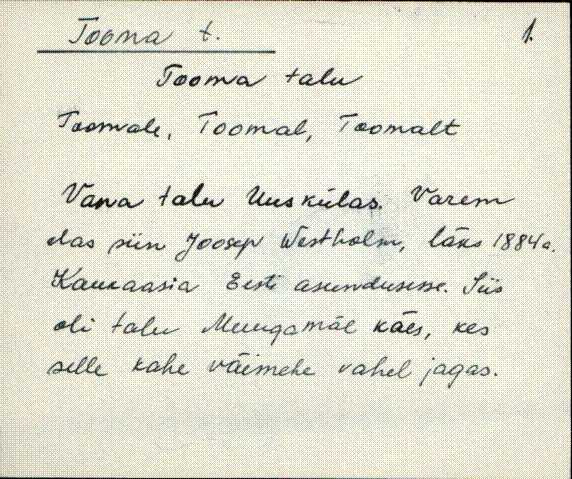 Tooma t. 1.
Tooma talu
Toomale, Toomal, Toomalt
Vana talu Uuskülas. Varem
elas siin Joosep Westholm, läks 1884 a.
Kaukaasia Eesti asundusesse. Siis
oli talu Muugamäe käes, kes
selle kahe väimehe vahel jagas.